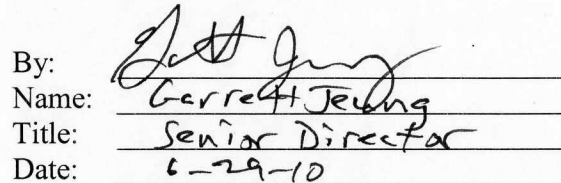 By:
Name: Garrett Jeung
Title: Senior Director
Date: 6-29-10